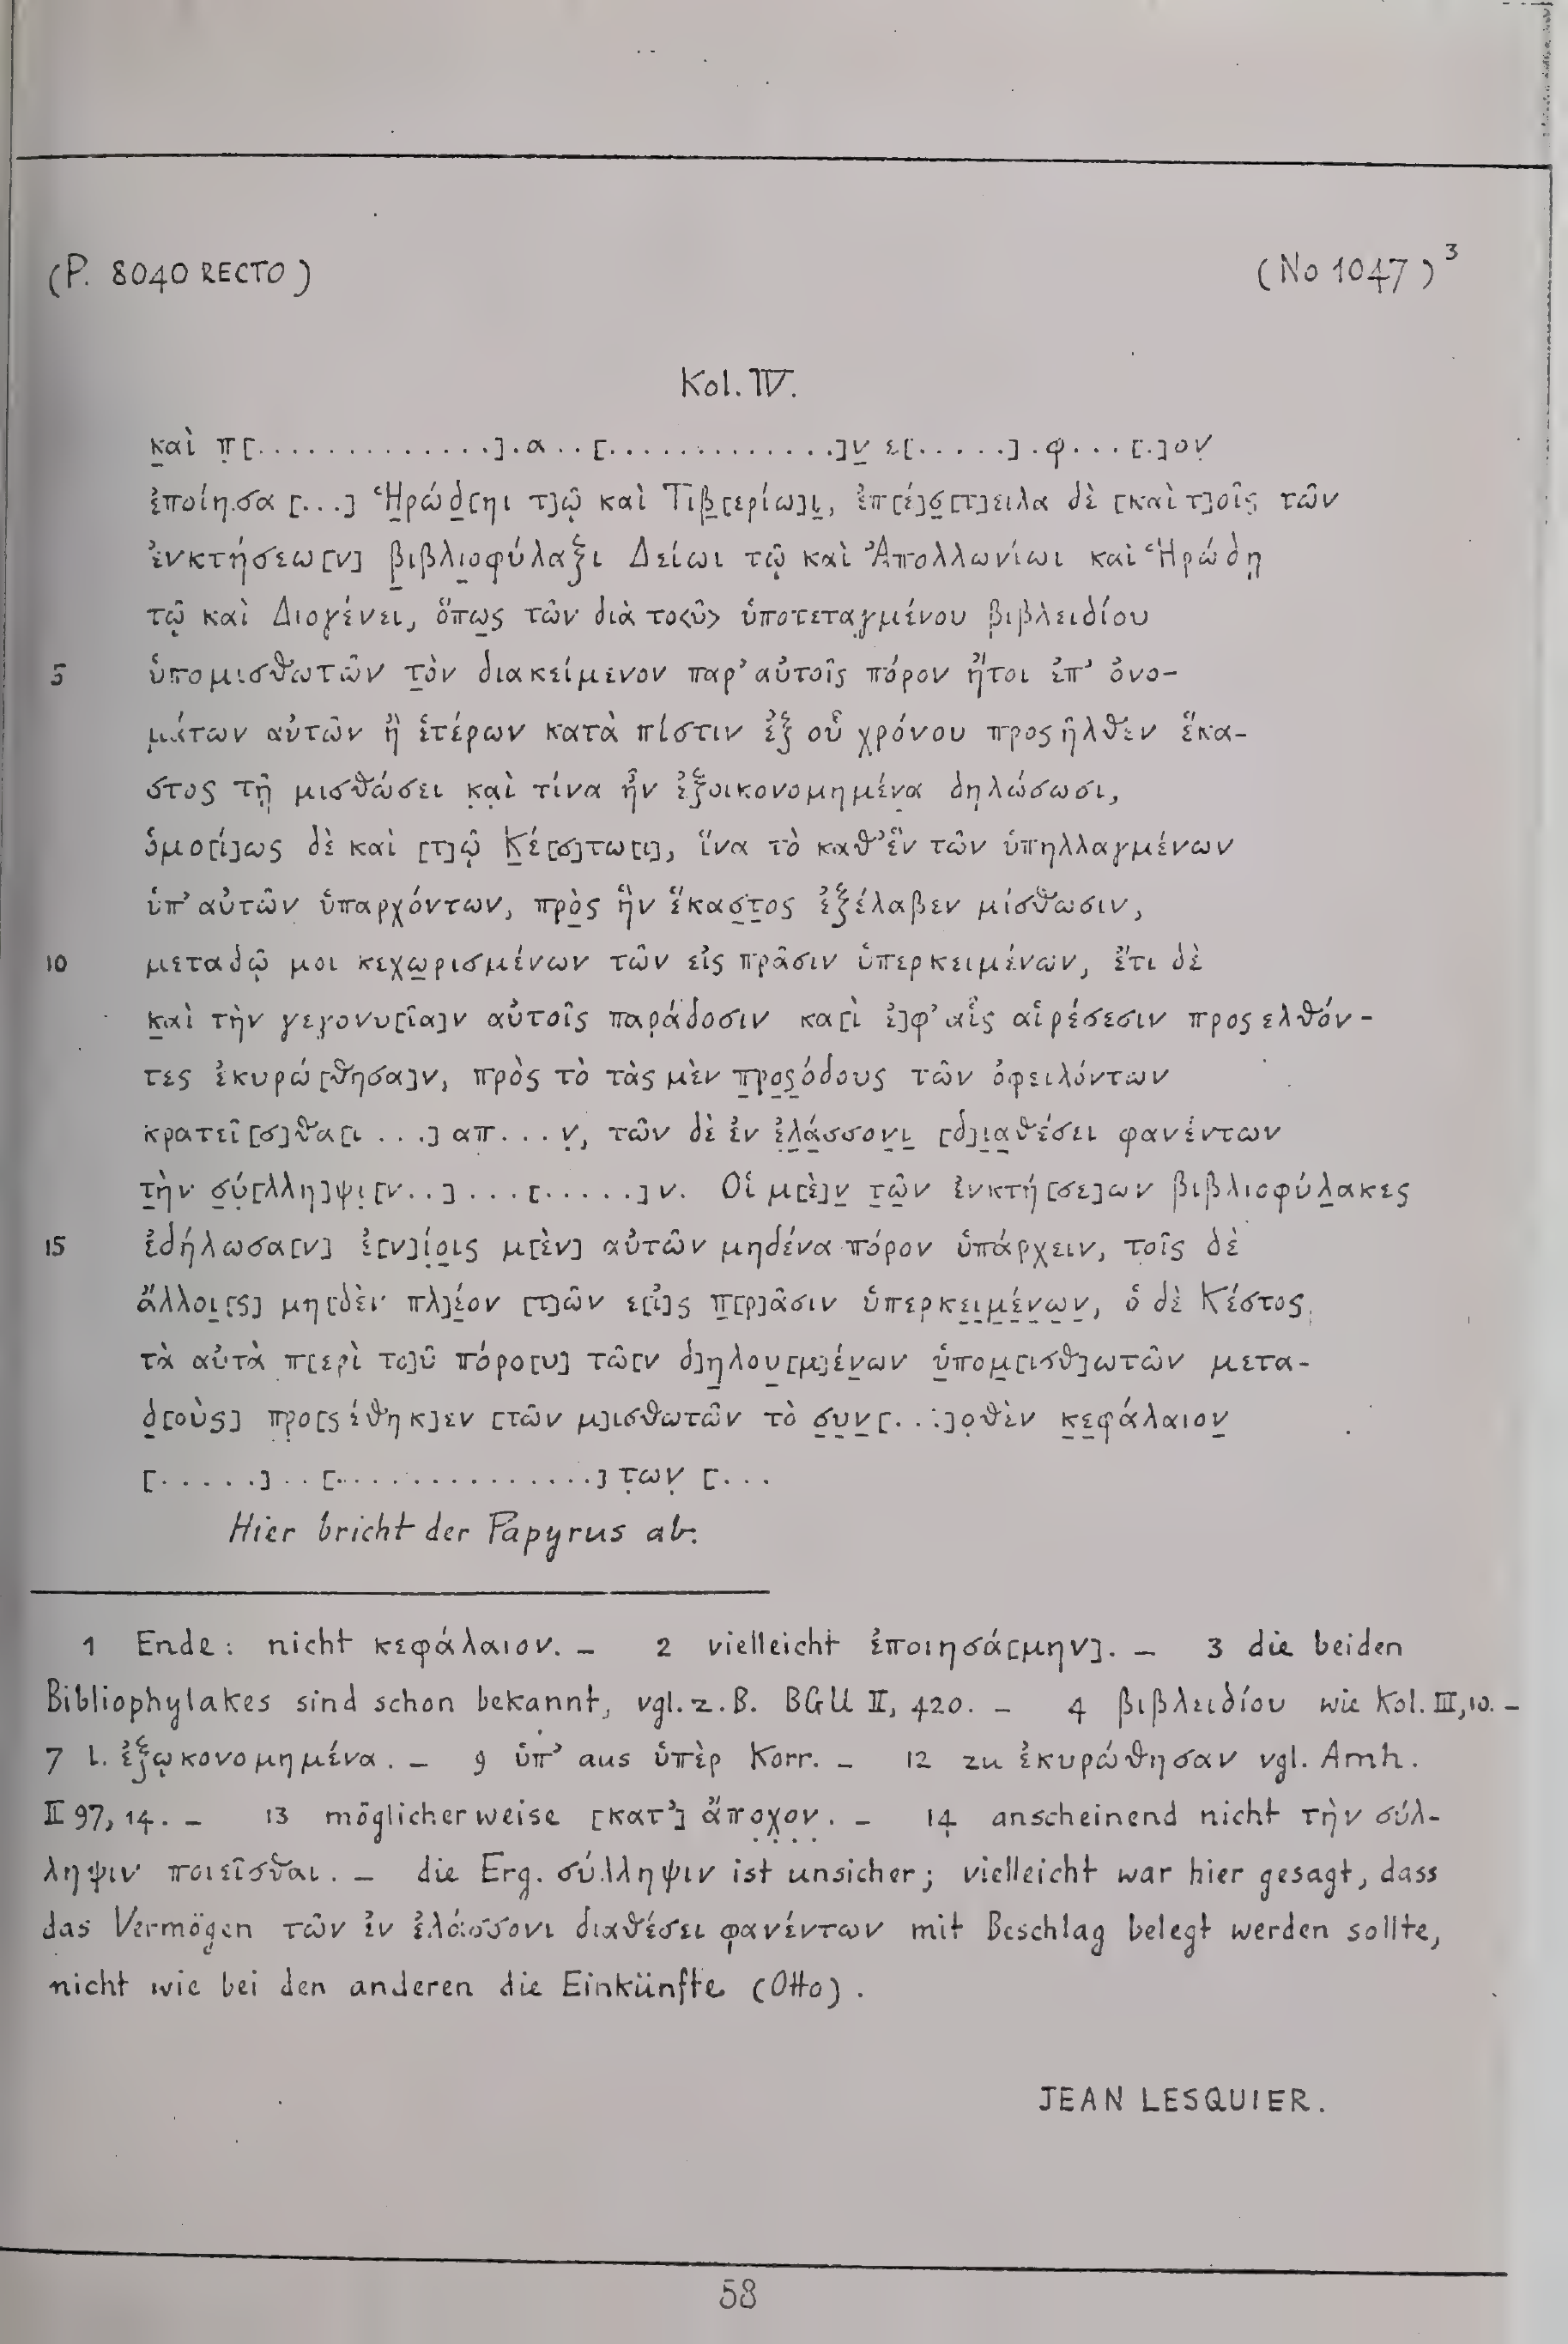 (P. 8040 RECTO) (No 1047)³
Kol. IV.
κ̣αὶ π̣[.............].α..[.............]ν̣ ε[.....].φ...[.]ον̣
ἐποίησα [...] Ἡ̣ρώδ̣[ηι τ]ῷ καὶ Τιβ̣[ερίω]ι̣, ἐπ[έ]σ̣[τ]ειλα δὲ [καὶ τ]οῖς̣ τῶν
ἐνκτήσεω[ν] β̣ιβλι̣οφύλαξι Δείωι τῷ καὶ Ἀπολλωνίωι καὶ Ἡρώδῃ
τῷ καὶ Διογένει, ὅπω̣ς τῶν διὰ το<ῦ> ὑποτεταγ̣μένου β̣ιβλειδίου
5 ὑπομισθωτῶν τ̣ὸν διακείμενον παρ' αὐτοῖς πόρον ἤτοι ἐπ' ὀνο-
μ̣άτων αὐτῶν ἢ ἑτέρων κατὰ πίστιν ἐξ οὗ χρόνου προσῆλθεν ἕκα-
στος τῇ μισθώσει κ̣α̣ὶ τίνα ἦν ἐξοικονομημένα δηλώσωσι,
ὁμο[ί]ως δὲ καὶ [τ]ῷ Κ̣έ[σ]τω[ι], ἵνα τὸ καθ' ἓν τῶν ὑπηλλαγμένων
ὑπ' αὐτῶν ὑπαρχόντων, πρὸ̣ς ἣν ἕκασ̣τ̣ος ἐξέλαβεν μίσθωσιν,
10 μεταδῷ μοι κεχω̣ρισμένων τῶν εἰς πρᾶσιν ὑπερκειμένων, ἔτι δὲ
κ̣αὶ τὴν γεγονυ[ῖα]ν αὐτοῖς παρ̣άδοσιν κα[ὶ ἐ]φ' αἷς αἱρέσεσιν προσελθόν-
τες ἐκυρώ[θησα]ν, πρὸς τὸ τὰς μὲν π̣ρ̣ο̣σ̣όδους τῶν ὀφειλόντων
κρατεῖ[σ]θα[ι ...] απ...ν̣, τῶν δὲ ἐν ἐ̣λ̣ά̣σσον̣ι̣ [δ]ι̣α̣θέσει φανέντων
τ̣ὴν σ̣ύ̣[λλη]ψι̣[ν..]...[.....]ν. Οἱ μ[ὲ]ν̣ τ̣ῶ̣ν ἐνκτή[σε]ων βιβλιοφύλ̣ακες
15 ἐδήλωσα[ν] ἐ[ν]ίο̣ι̣ς μ[ὲν] αὐτῶν μηδένα πόρον ὑπάρχειν, τοῖς δὲ
ἄλλοι̣[ς] μη[δὲν πλ]έ̣ον [τ]ῶν ε[ἰ]ς π̣[ρ]ᾶσιν ὑπερκε̣ι̣μ̣έ̣ν̣ω̣ν̣, ὁ δὲ Κέστος
τὰ αὐτὰ π[ερὶ το]ῦ πόρο[υ] τῶ[ν δ]η̣λου̣[μ]έ̣ν̣ων ὑ̣πομ̣[ισθ]ωτῶν μετα-
δ̣[οὺς] πρ̣ο[σέθηκ]εν [τῶν μ]ισθωτῶν τὸ σ̣υ̣ν̣[...]ο̣θὲν κ̣ε̣φάλαιον̣
[.....]..[...............]τ̣ων̣ [...
Hier bricht der Papyrus ab.
1 Ende: nicht κεφάλαιον. – 2 vielleicht ἐποιησά[μην]. – 3 die beiden
Bibliophylakes sind schon bekannt, vgl. z. B. BGU II, 420. – 4 βιβλειδίου wie Kol. III, 10. –
7 l. ἐξῳκονομημένα. – 9 ὑπ' aus ὑπὲρ Korr. – 12 zu ἐκυρώθησαν vgl. Amh.
II 97, 14. – 13 möglicherweise [κατ'] ἄπ̣ο̣χ̣ο̣ν. – 14 anscheinend nicht τὴν σύλ-
ληψιν ποιεῖσθαι. – die Erg. σύλληψιν ist unsicher; vielleicht war hier gesagt, dass
das Vermögen τῶν ἐν ἐλάσσονι διαθέσει φανέντων mit Beschlag belegt werden sollte,
nicht wie bei den anderen die Einkünfte (Otto).
JEAN LESQUIER.
58